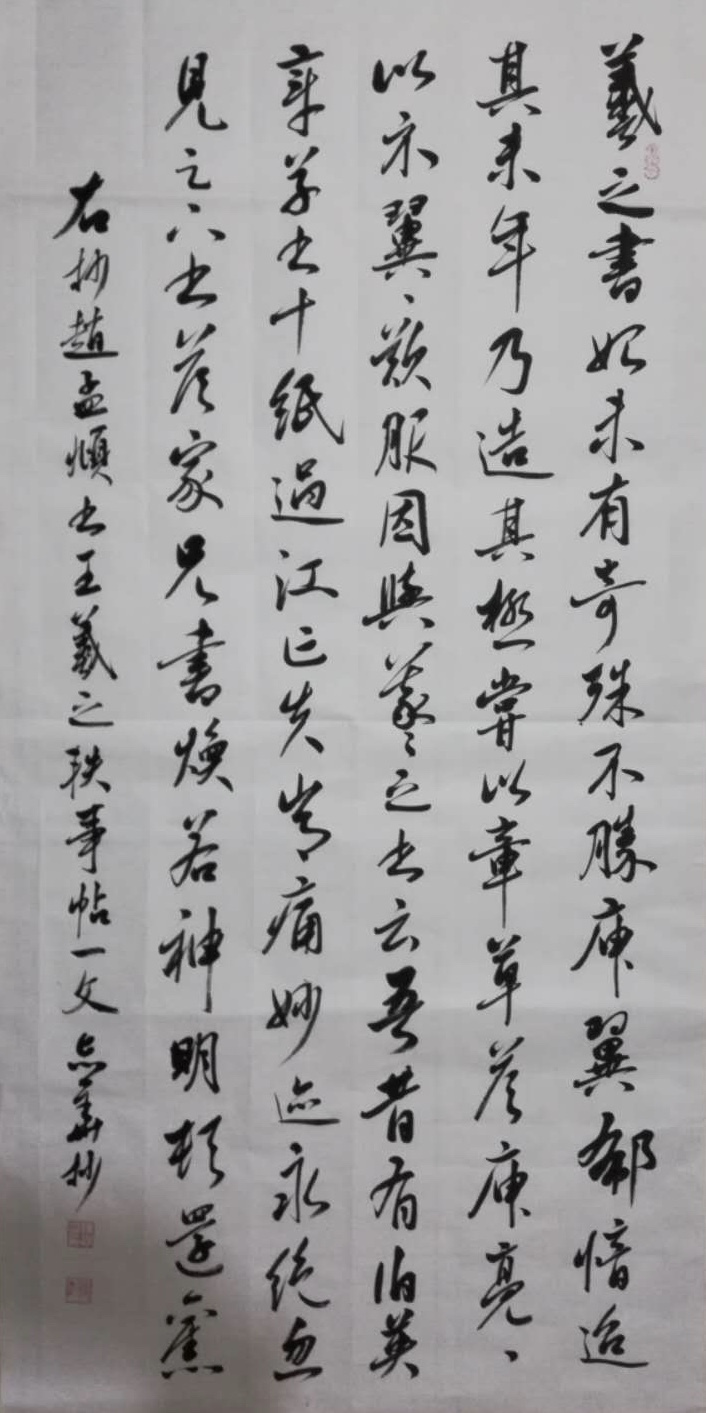 羲之書始未有奇殊不勝庾翼郗愔迨
其末年乃造其極嘗以章草答庾亮、
以示翼、歎服因與羲之書云吾昔有伯英
章草書十紙過江亡失常痛妙迹永絕忽
見足下书答家兄書煥若神明頓還舊
右抄趙孟頫书王羲之軼事帖一文